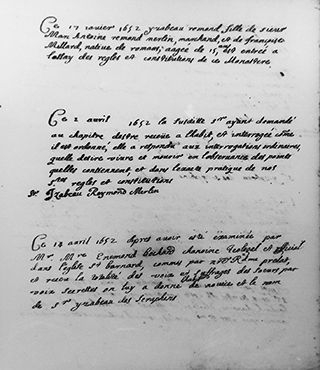 Ce 17 janvier 1652 yzabeau romand fille de sieur
Marc Antoine remond merlin, marchand, et de françoise
Millard, native de romans, aagée de 15 ans est entrée a
l'essay des regles et constitutions de ce Monastere
Ce 2 avril 1652 la susditte sr ayant demandé
au chapitre destre receüe a l'habit, et interrogée comme
il est ordonné, elle a respondu aux interogations ordinaires,
quelle desire vivre et mourir en l'observance des points
quelles contiennent, et dans lexacte pratique de nos
stes regles et constitutions
Sr yzabeau Raymond Merlin
Ce 18 avril 1652 Apres avoir esté examinée par
Mr Mre Enemond chanoine et official
dans l'eglise St barnard, commis par prelat,
et receu la des voix ou suffrages des sœurs par
voix secrettes on luy a donné de novice et le nom
de sr yzabeau des seraphins